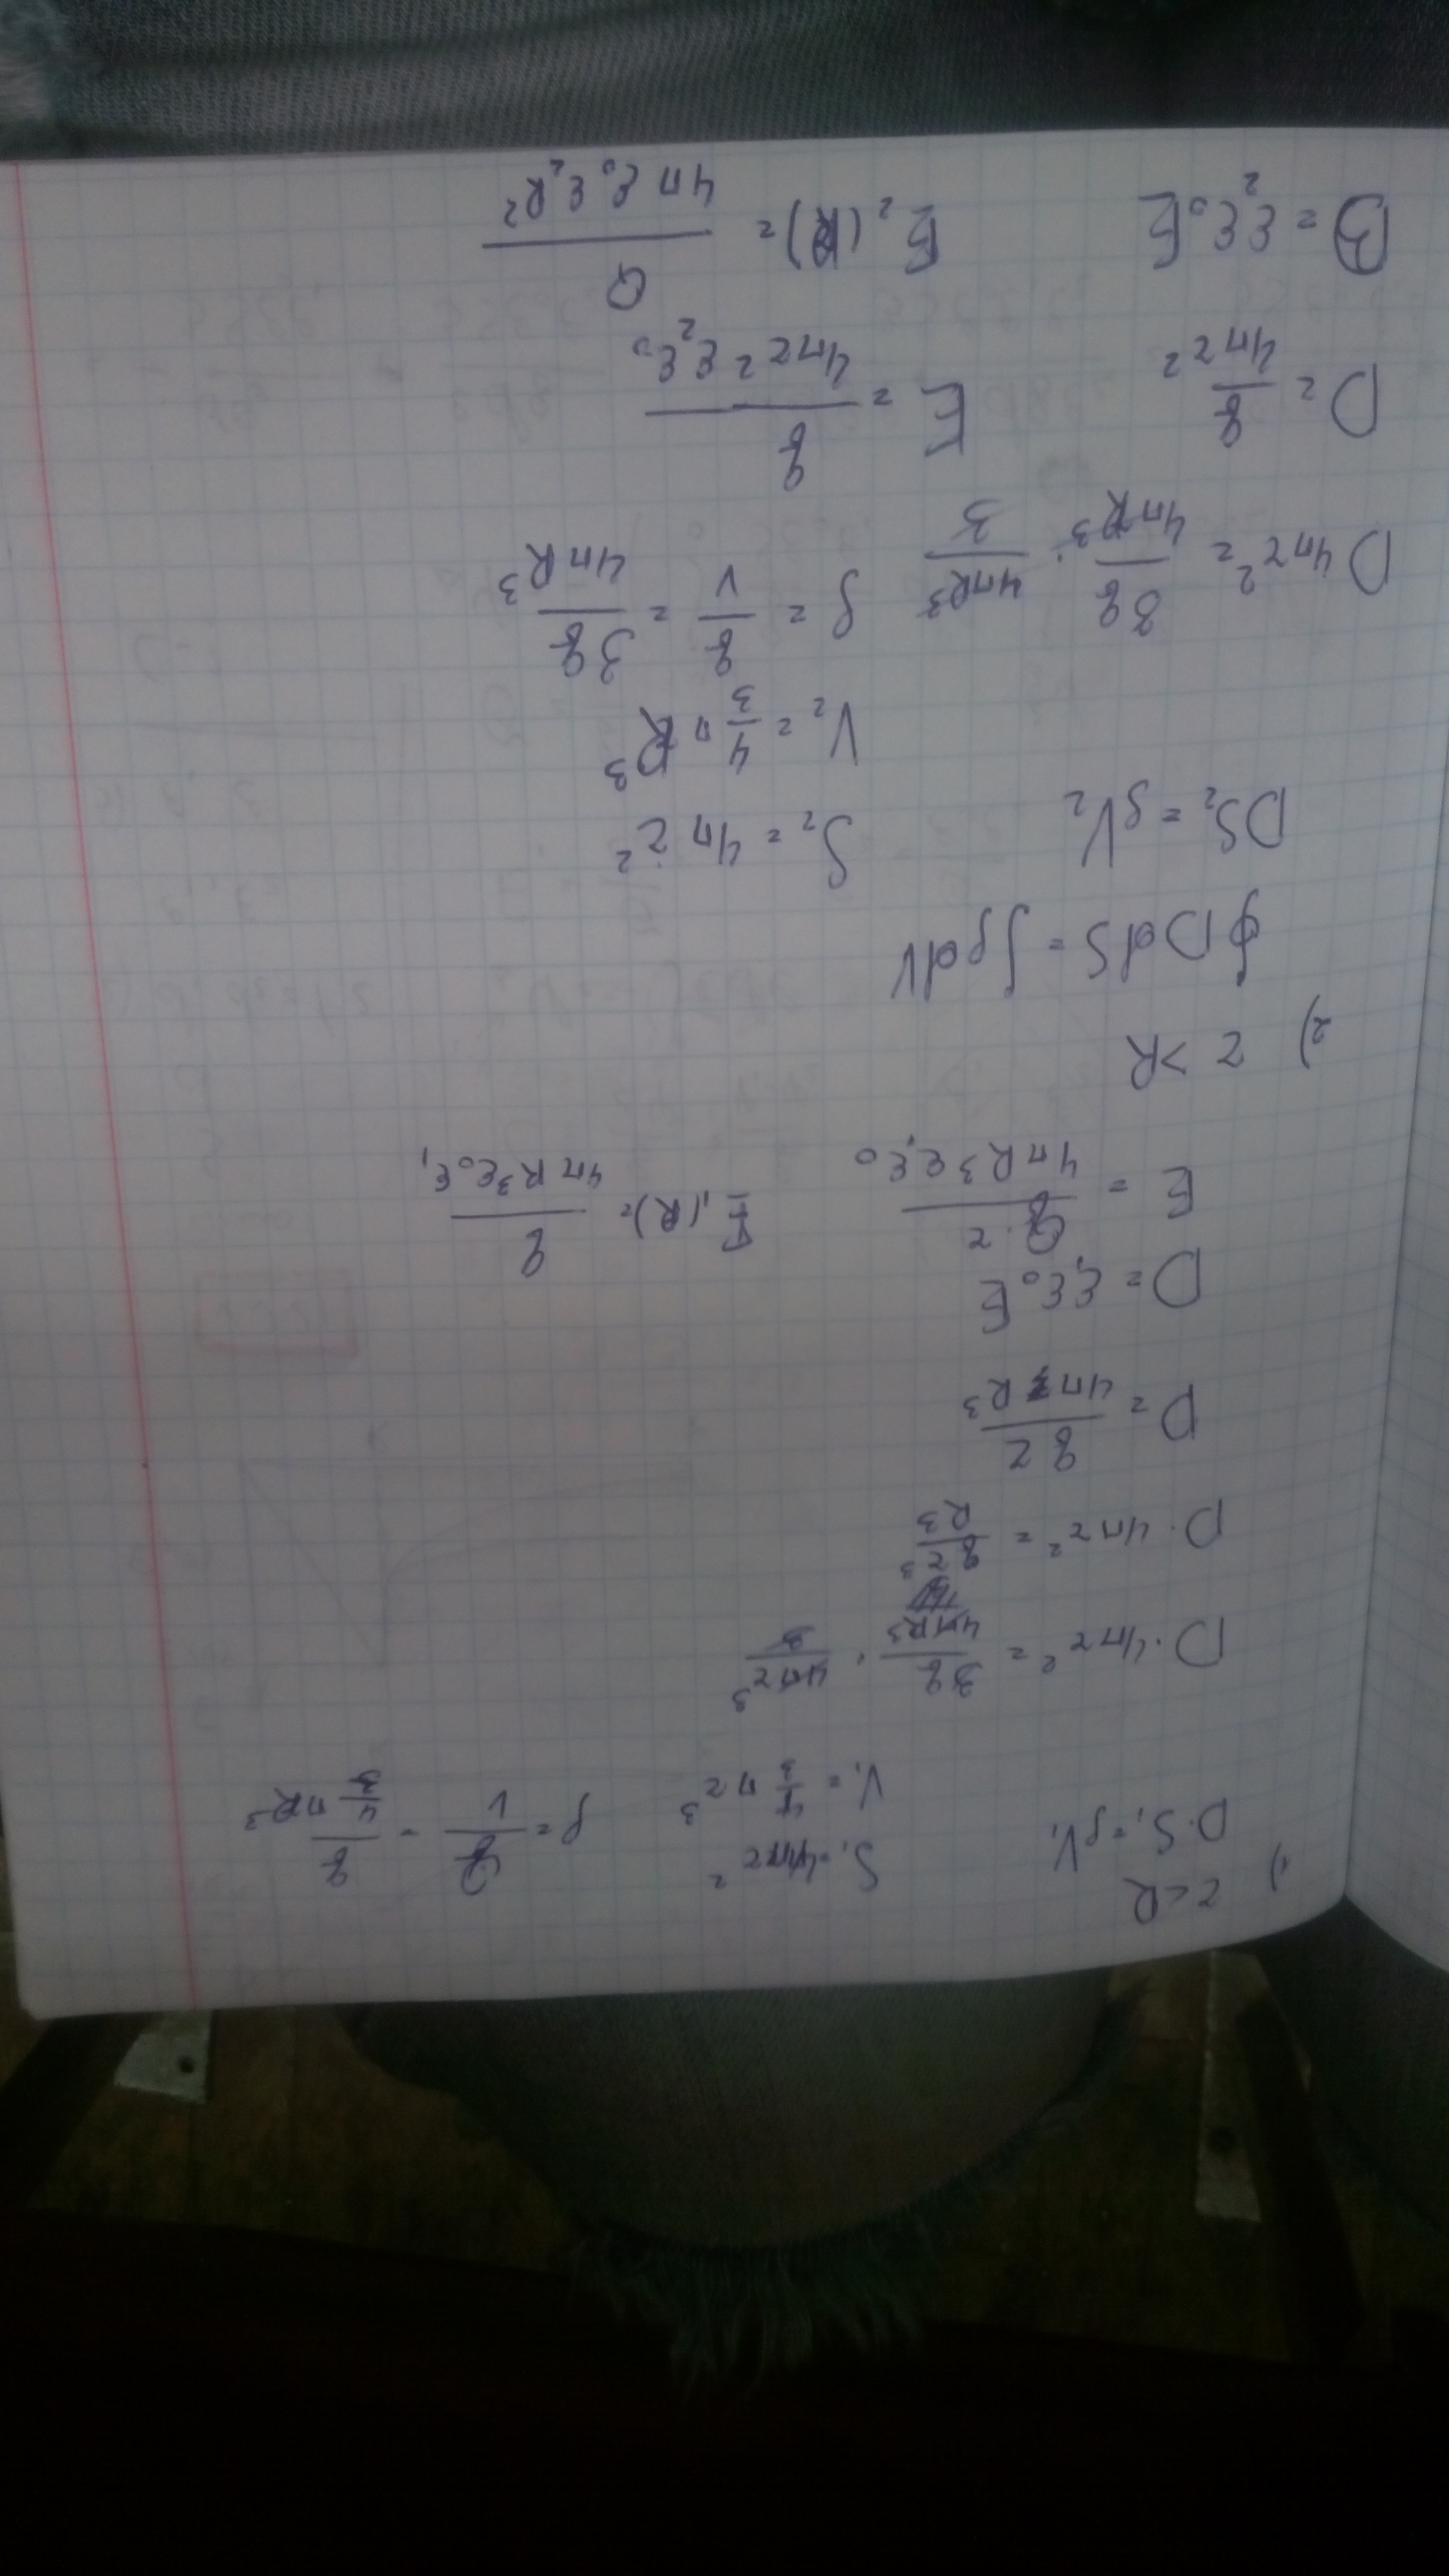 1) r < R
D·S₁ = ρV₁ S₁ = 4πr² ρ = q/V = q/(4/3 πR³)
V₁ = 4/3 πr³
D·4πr² = 3q/4πR³ · 4πr³/3
D·4πr² = qr³/R³
D = qr/4πR³
D = ε₁ε₀E
E = q·r/4πR³ε₁ε₀ E₁(R) = q/4πR³ε₀ε₁
2) r > R
∮DdS = ∫ρdV
DS₂ = ρV₂ S₂ = 4πr²
V₂ = 4/3 πR³
D4πr² = 3q/4πR³ · 4πR³/3 ρ = q/V = 3q/4πR³
D = q/4πr² E = q/4πr²ε₂ε₀
D = ε₂ε₀E E₂(R) = Q/4πε₀ε₂R²